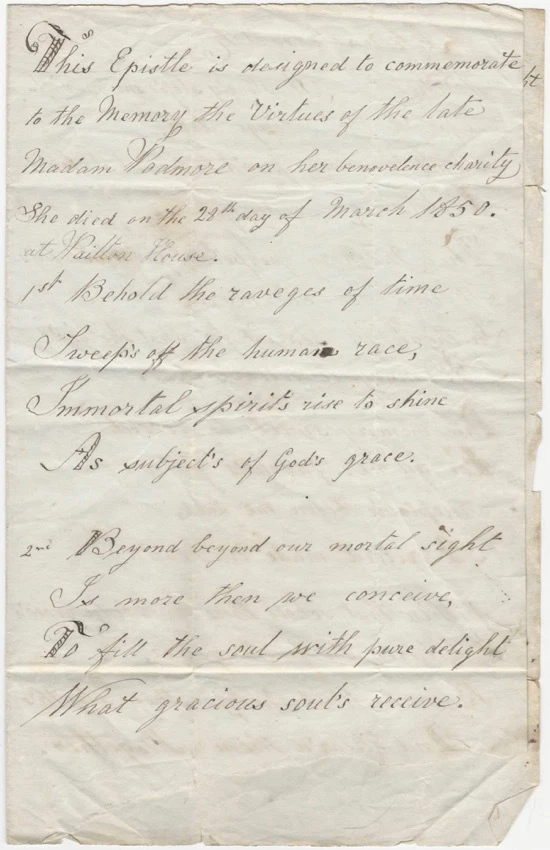 This Epistle is designed to commemorate
to the Memory the Virtues of the late
Madam Padmore on her benovelence charity
She died on the 28th day of March 1850.
at Wailton House.
1st Behold the raveges of time
Sweep's off the human race,
Immortal spirit's rise to shine
As subject's of God's grace.
2nd Beyond beyond our mortal sight
Is more then we conceive,
To fill the soul with pure delight
What gracious soul's receive.